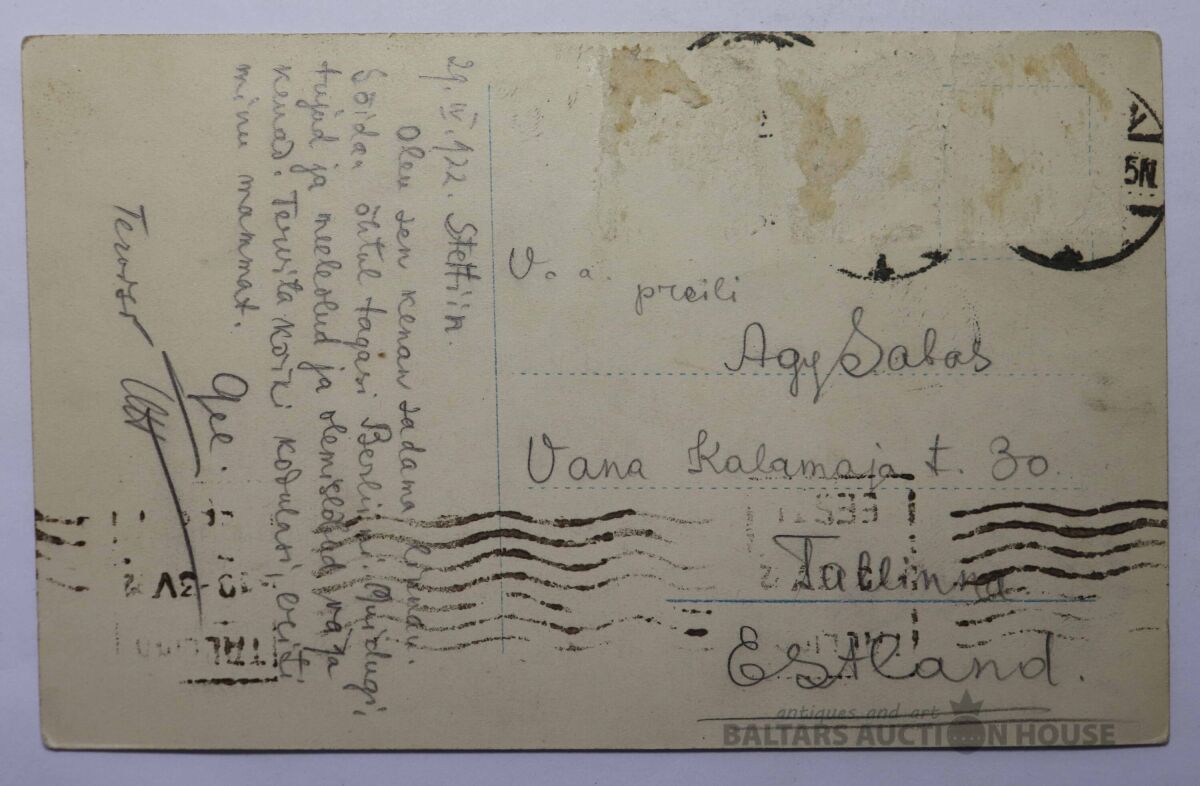 29.IV.22. Stettiin.
Olen sen kenan sadama linnas.
Sõidan õhtul tagasi Berliini. Muidugi,
tujud ja meeleolud ja olemised
kenad. Tervita kõiki kodulasi, eriti
minu mammat.
Tervisi
V. a.
preili
Agy Sabas
Vana Kalamaja t. 30.
Tallinna
Estland.
EESTI
-3V
TAL
antiques and art
BALTARS AUCTION HOUSE